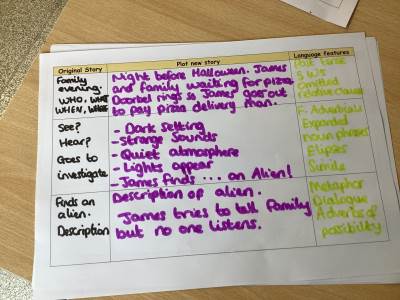 Original Story
Plot new story
Language features
Family
evening.
WHO, WHAT
WHEN, WHERE
Night before Halloween. James
and family waiting for pizza
Doorbel rings so James goes out
to pay pizza delivery man.
Past tense
5 W's
Omitted
relative clause
See?
Hear?
Goes to
investigate
- Dark setting
- Strange sounds
- Quiet atmosphere
- Lights appear
- James finds ... an Alien!
F. Adverbials
Expanded
noun phrases
Elipses
Simile
Finds an
alien.
Description
Description of alien.
James tries to tell family
but no one listens.
Metaphor
Dialogue
Adverbs of
possibility